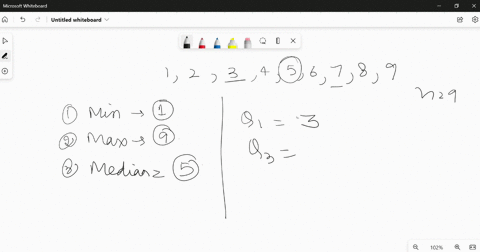 Microsoft Whiteboard
Untitled whiteboard
1, 2, 3, 4, 5, 6, 7, 8, 9
n=9
① Min → 1
② Max → 9
③ Median = 5
Q1 = 3
Q3 =
102%